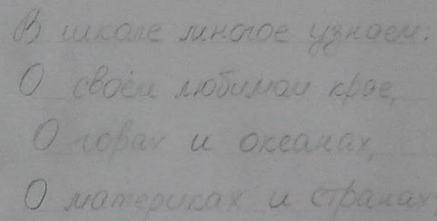 В школе многое узнаем:
О своём любимом крае,
О горах и океанах,
О материках и странах